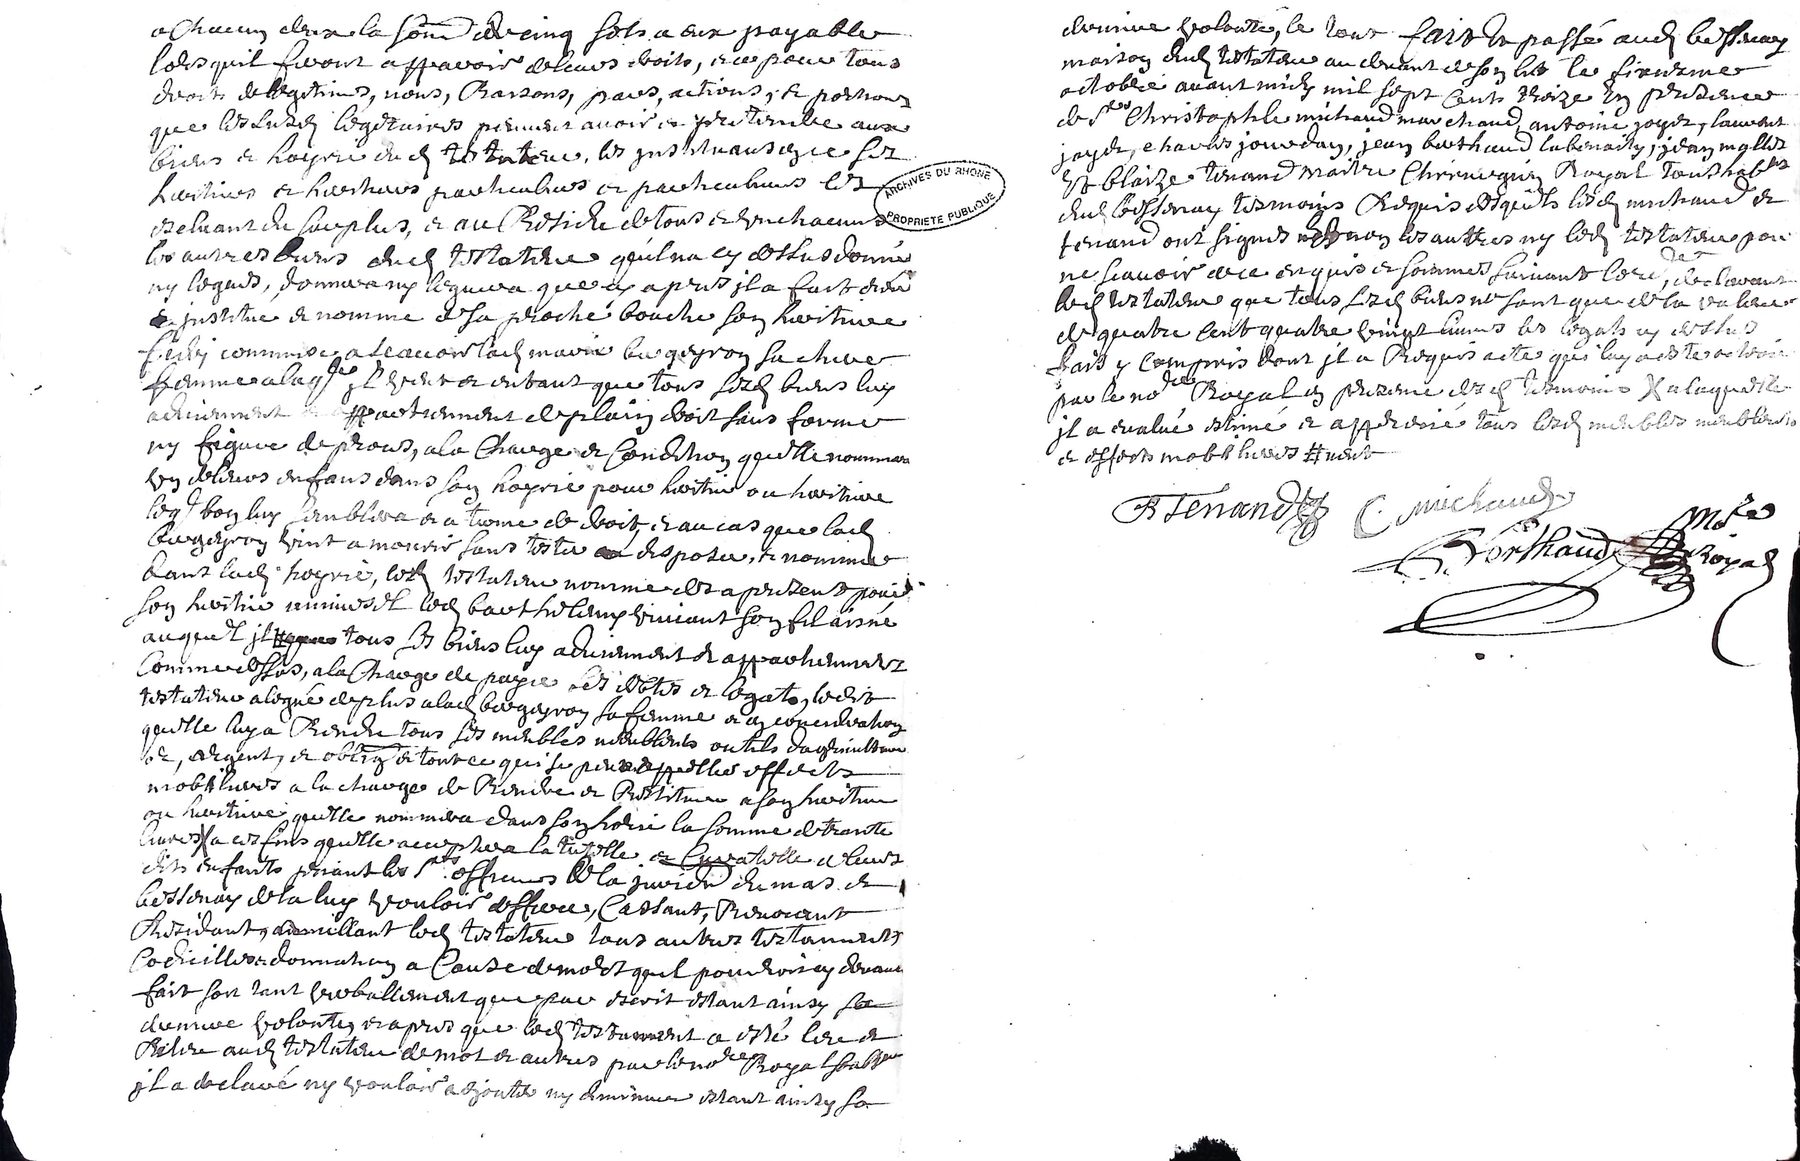 a chacun deux la som̄e de cinq sols a eux payable
lors quil feront apparoir de leurs droits, et ce pour tous
droits de legitimes, noms, Raisons, parts, actions, et portions
que lesusd legataires peuvent avoir et pretendre aux
biens et hoyrie dud testateur, les instituans en ce ses
heritiers et heritieres particuliers et particulieres les
excluant du surplus, et au Residu de tous et un chacuns
les autres biens dud testateur quil na cy dessus donné
ny legués, donnera ny leguera que cy apres il a fait créé
institue et nomme de sa proche bouche son heritiere
commise a scavoir lad marie bergeyron sa chere
femme a laq^lle il veut et entant que tous sesd biens luy
adviennent et appartiennent de plain droit sans forme
ny figure de proces, a la Charge et Condition quelle nommera
un de leurs enfans dans son hoyrie pour heritier ou heritiere
leq^l bon luy semblera et a terme de droit, et au cas que lad
bergeyron vint a mourir sans tester ou disposer, et nommer
dans lad hoyrie, led testateur nomme des a present pour
son heritier universel led barthelemy son fil aisné
auquel il tous ses biens luy adviennent et appartiennent
Comme dessus, a la Charge de payer ses debtes et legats, ledit
testateur a legué de plus a lad bergeyron sa femme et en consideration
quelle luy a Rendu tous ses meubles meublants outils dagriculture
or, argent, et oblig^on et tout ce qui se peut appeller effects
mobiliers a la charge de Rendre et Restituer a son heritier
ou heritiere quelle nommera dans son hoirie la somme de trante
livres a ces fins quelle acceptera la tutelle et Curatelle de leurs
dits enfants priant les s^rs officiers de la jurid^on du mas et
bessenay de la luy vouloir defferer, Cassant, Revocant
led testateur tous autres testaments
Codicilles et donnation a Cause de mort quil pourroit cy devant
fait soit tant verballement que par escrit estant ainsy sa
derniere volonté, et apres que led testament a esté leu et
Releu aud testateur de mot et autres par le no^re Royal
il a declaré ny vouloir adjouter ny diminuer estant ainsy sa
ARCHIVES DU RHONE
PROPRIETE PUBLIQUE
derniere volonté, le tout fait et passé aud bessenay
maison dud testateur au devant de son lit le
octobre avant midy mil sept cents treize en presence
de s^rs Christophle michaud marchand, antoine joyet, laurent
joyet, charles jourdan, jean berthaud, jean mollet
et blaize tenand maitre Chirurgien Royal tous hab^ts
dud bessenay tesmoins Requis desquels lesd michaud et
tenand ont signés et non les autres ny led testateur pour
ne scavoir de ce enquis et sommés suivant l'ord^ce, declarant
led testateur que tous sesd biens ne sont que de la valeur
de quatre cent quatre vingt livres les legats cy dessus
fais y compris dont il a Requis acte qui luy a este octroié
par le no^re Royal en presence desd tesmoins X a laquelle
il a evalué estimé et apprecié tous lesd meubles meublants
et effects mobiliers #
B Tenand C. michaud
Berthaud No^re
Royal